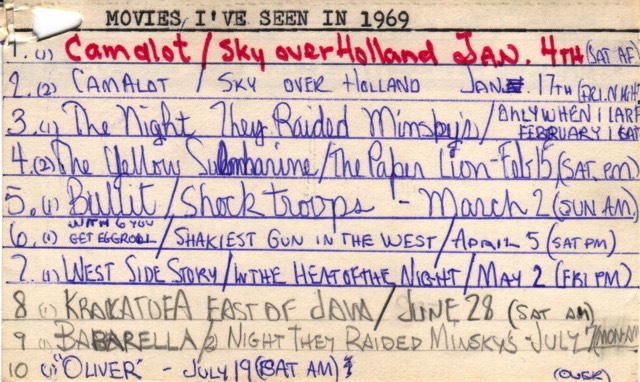 MOVIES, I'VE SEEN IN 1969
1. (1) Camalot / Sky over Holland JAN. 4TH (SAT AF
2. (2) CAMALOT / SKY OVER HOLLAND JAN 17TH (FRI. NIGHT
3. (1) The Night They Raided Minsky's / ONLY WHEN I LARF FEBRUARY 1 (SAT
4. (2) The Yellow Submarine / The Paper Lion - Feb 15 (SAT. PM)
5. (1) Bullit / Shock troops - March 2 (SUN AM)
6. (1) WITH 6 YOU GET EGGROLL / SHAKIEST GUN IN THE WEST / APRIL 5 (SAT PM)
7. (1) WEST SIDE STORY / IN THE HEAT OF THE NIGHT / MAY 2 (FRI PM)
8 (1) KRAKATOEA EAST OF JAVA / JUNE 28 (SAT AM)
9 (1) BABARELLA / (2) NIGHT THEY RAIDED MINSKY'S - JULY 7 (MON-AM
10 (1) "OLIVER" - JULY 19 (SAT AM)
(OVER)